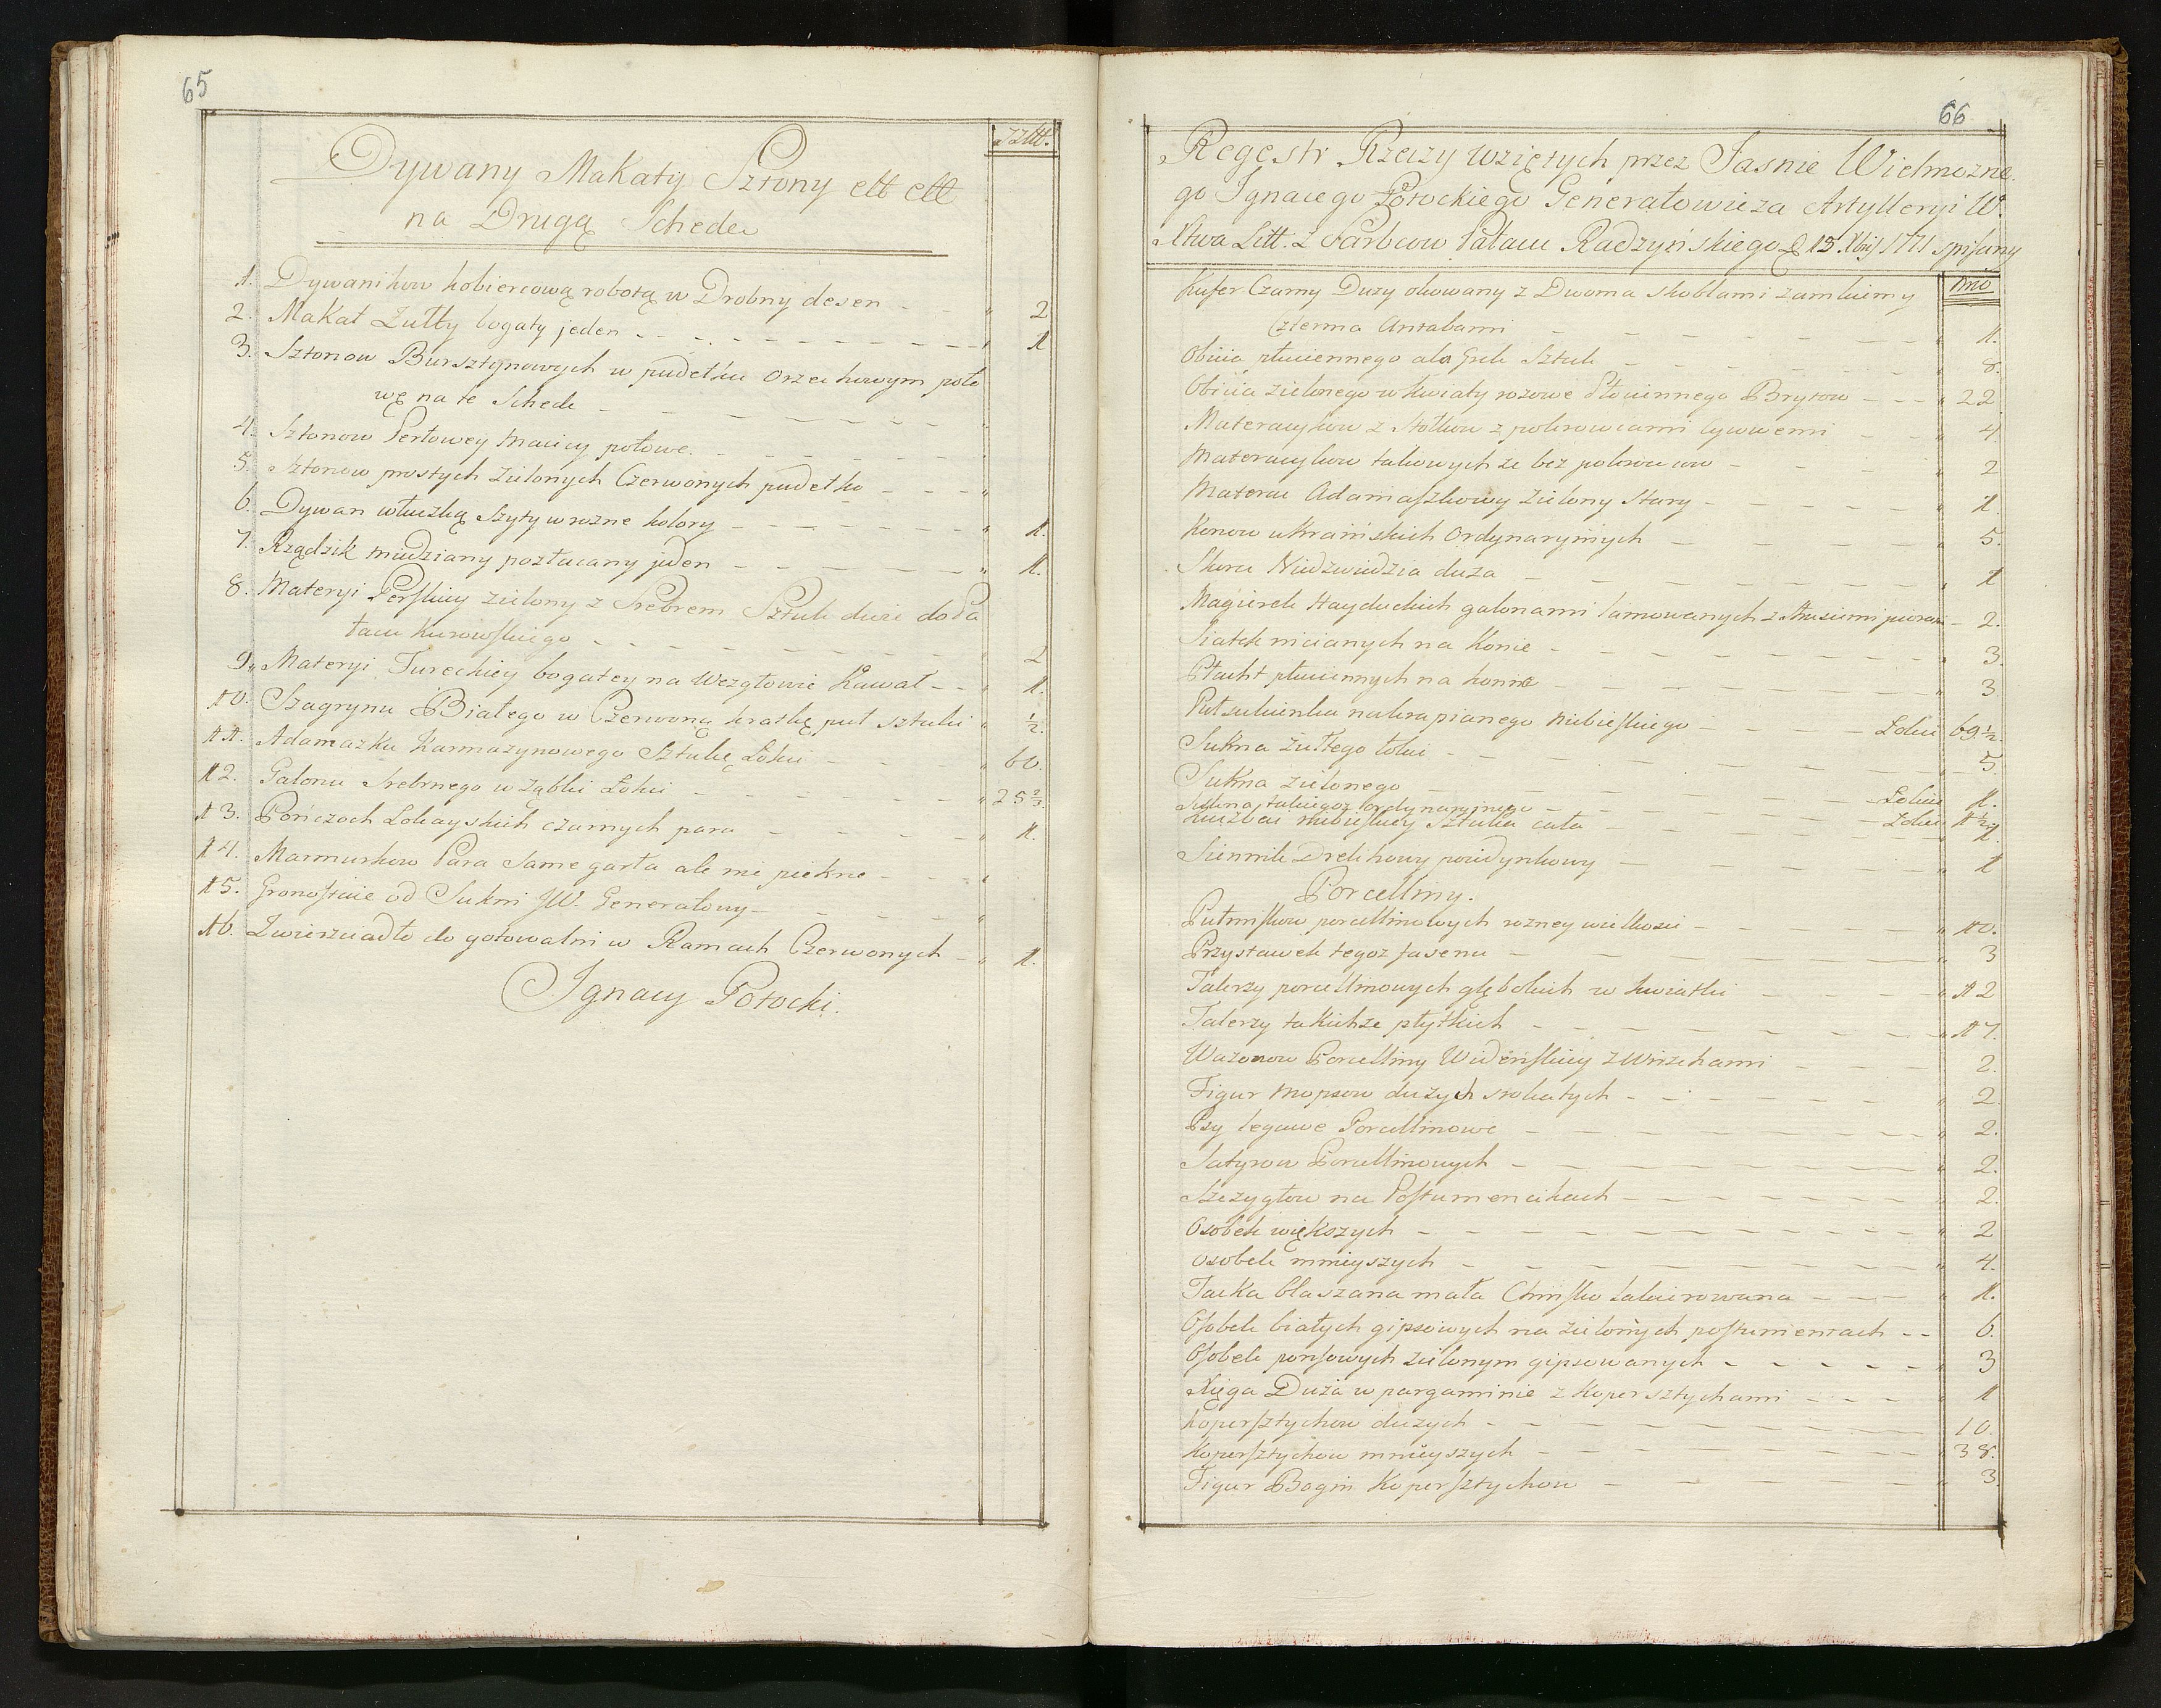 65
Sztt.
Dywany Makaty Sztony ett ett
na Drugą Schedę
1. Dywanikow kobiercową robotą w Drobny desen - - " 2
2. Makat Żułty bogaty jeden - - - - " 1
3. Sztonow Bursztynowych w pudełku orzechowym poło
wę na te Schedę - - - - "
4. Sztonow Perłowey Macicy połowe. - - - "
5. Sztonow prostych Zielonych Czerwonych pudełko - - - "
6. Dywan włuczką Szyty w rożne kolory - - - " 1.
7. Rządzik miedziany pozłacany jeden - - - " 1.
8. Materyi Perskiey zielony z Srebrem Sztuk dwie do Pa
łacu Kurowskiego - - - " 2
9. Materyi Tureckiey bogatey na Wezgłowie Kawał - - " 1.
10. Szagrynu Białego w Czerwoną kratkę puł sztuki " ½.
11. Adamazku Karmazynowego Sztukę Łokci - - - " 60.
12. Galonu Srebrnego w Ząbki Łokci - - - " 25 ⅔.
13. Pończoch Lokayskich czarnych para - - - " 1.
14. Marmurkow Para Same garła ale nie piekne - - - "
15. Gronostaie od Sukni JW. Generałowy - - - "
16. Zwierziadło do gotowalni w Ramach Czerwonych - " 1.
Ignacy Potocki.
66
Regestr Rzeczy wziętych przez Jasnie Wielmozne
go Ignacego Potockiego Generałowicza Artylleryi W.
Xtwa Litt. z Skarbcow Pałacu Radzyńskiego D 15. Xbrij 1771 spisany
Kufer Czarny Duzy okowany z Dwoma Skoblami zamkiem y
Czterma Antabami - - - " 1.
Obicia płuciennego ala Grek Sztuk - - - " 8.
Obicia zielonego w kwiaty rozowe Płociennego Brytow - - - " 22
Materacykow z Stołkow z pokrowcami cycowemi - - " 4.
Materacykow takowych ze bez pokrowcow - - - " 2
Materac Adamaszkowy Zielony Stary - - - " 1.
Konow ukraińskich Ordynaryinych - - - " 5.
Skora Niedzwiedzia duza - - - " 1
Magierek Hayduckich galonami lamowanych z Strusiemi piorami - 2.
Siatek nicianych na Konie - - - " 3.
Płacht płuciennych na konie - - - " 3
Pułsukienka nakrapianego niebieskiego - - - Łokci 69.½.
Sukna Żułtego łokci - - - 5.
Sukna zielonego - - - Łokci 1.
Sukna takiegoz ordynaryinego - - - Łokci 1½
Kuczbai niebieskiey Sztuka cała - - - " 1.
Siennik Drelikowy poiedynkowy - - - " 1
Porcelliny.
Pułmiskow porcellinowych rozney wielkosci - - - " 10.
Przystawek tegoz fasonu - - - " 3
Talerzy porcellinowych głębokich w kwiatki - - - " 12
Talerzy takichze płytkich - - - " 17.
Wazonow Porcelliny Wiedeńskiey z Wirzchami - - - 2.
Figur Mopsow duzych srokatych - - - " 2.
Psy legawe Porcellinowe - - - " 2.
Satyrow Porcellinowych - - - " 2.
Szczygłow na Postumencikach - - - " 2.
Osobek większych - - - " 2
osobek mnieyszych - - - " 4.
Tacka blaszana mała Chinsko lakierowana - - - " 1.
Osobek białych gipsowych na zielonych postumentach - - 6.
Osobek ponsowych zielonym gipsowanych - - - " 3
Xięga Duża w pargaminie z Kopersztychami - - - " 1
Kopersztychow duzych - - - 10.
Kopersztychow mnieyszych - - - " 38.
Figur Bogiń Kopersztychow - - - " 3.